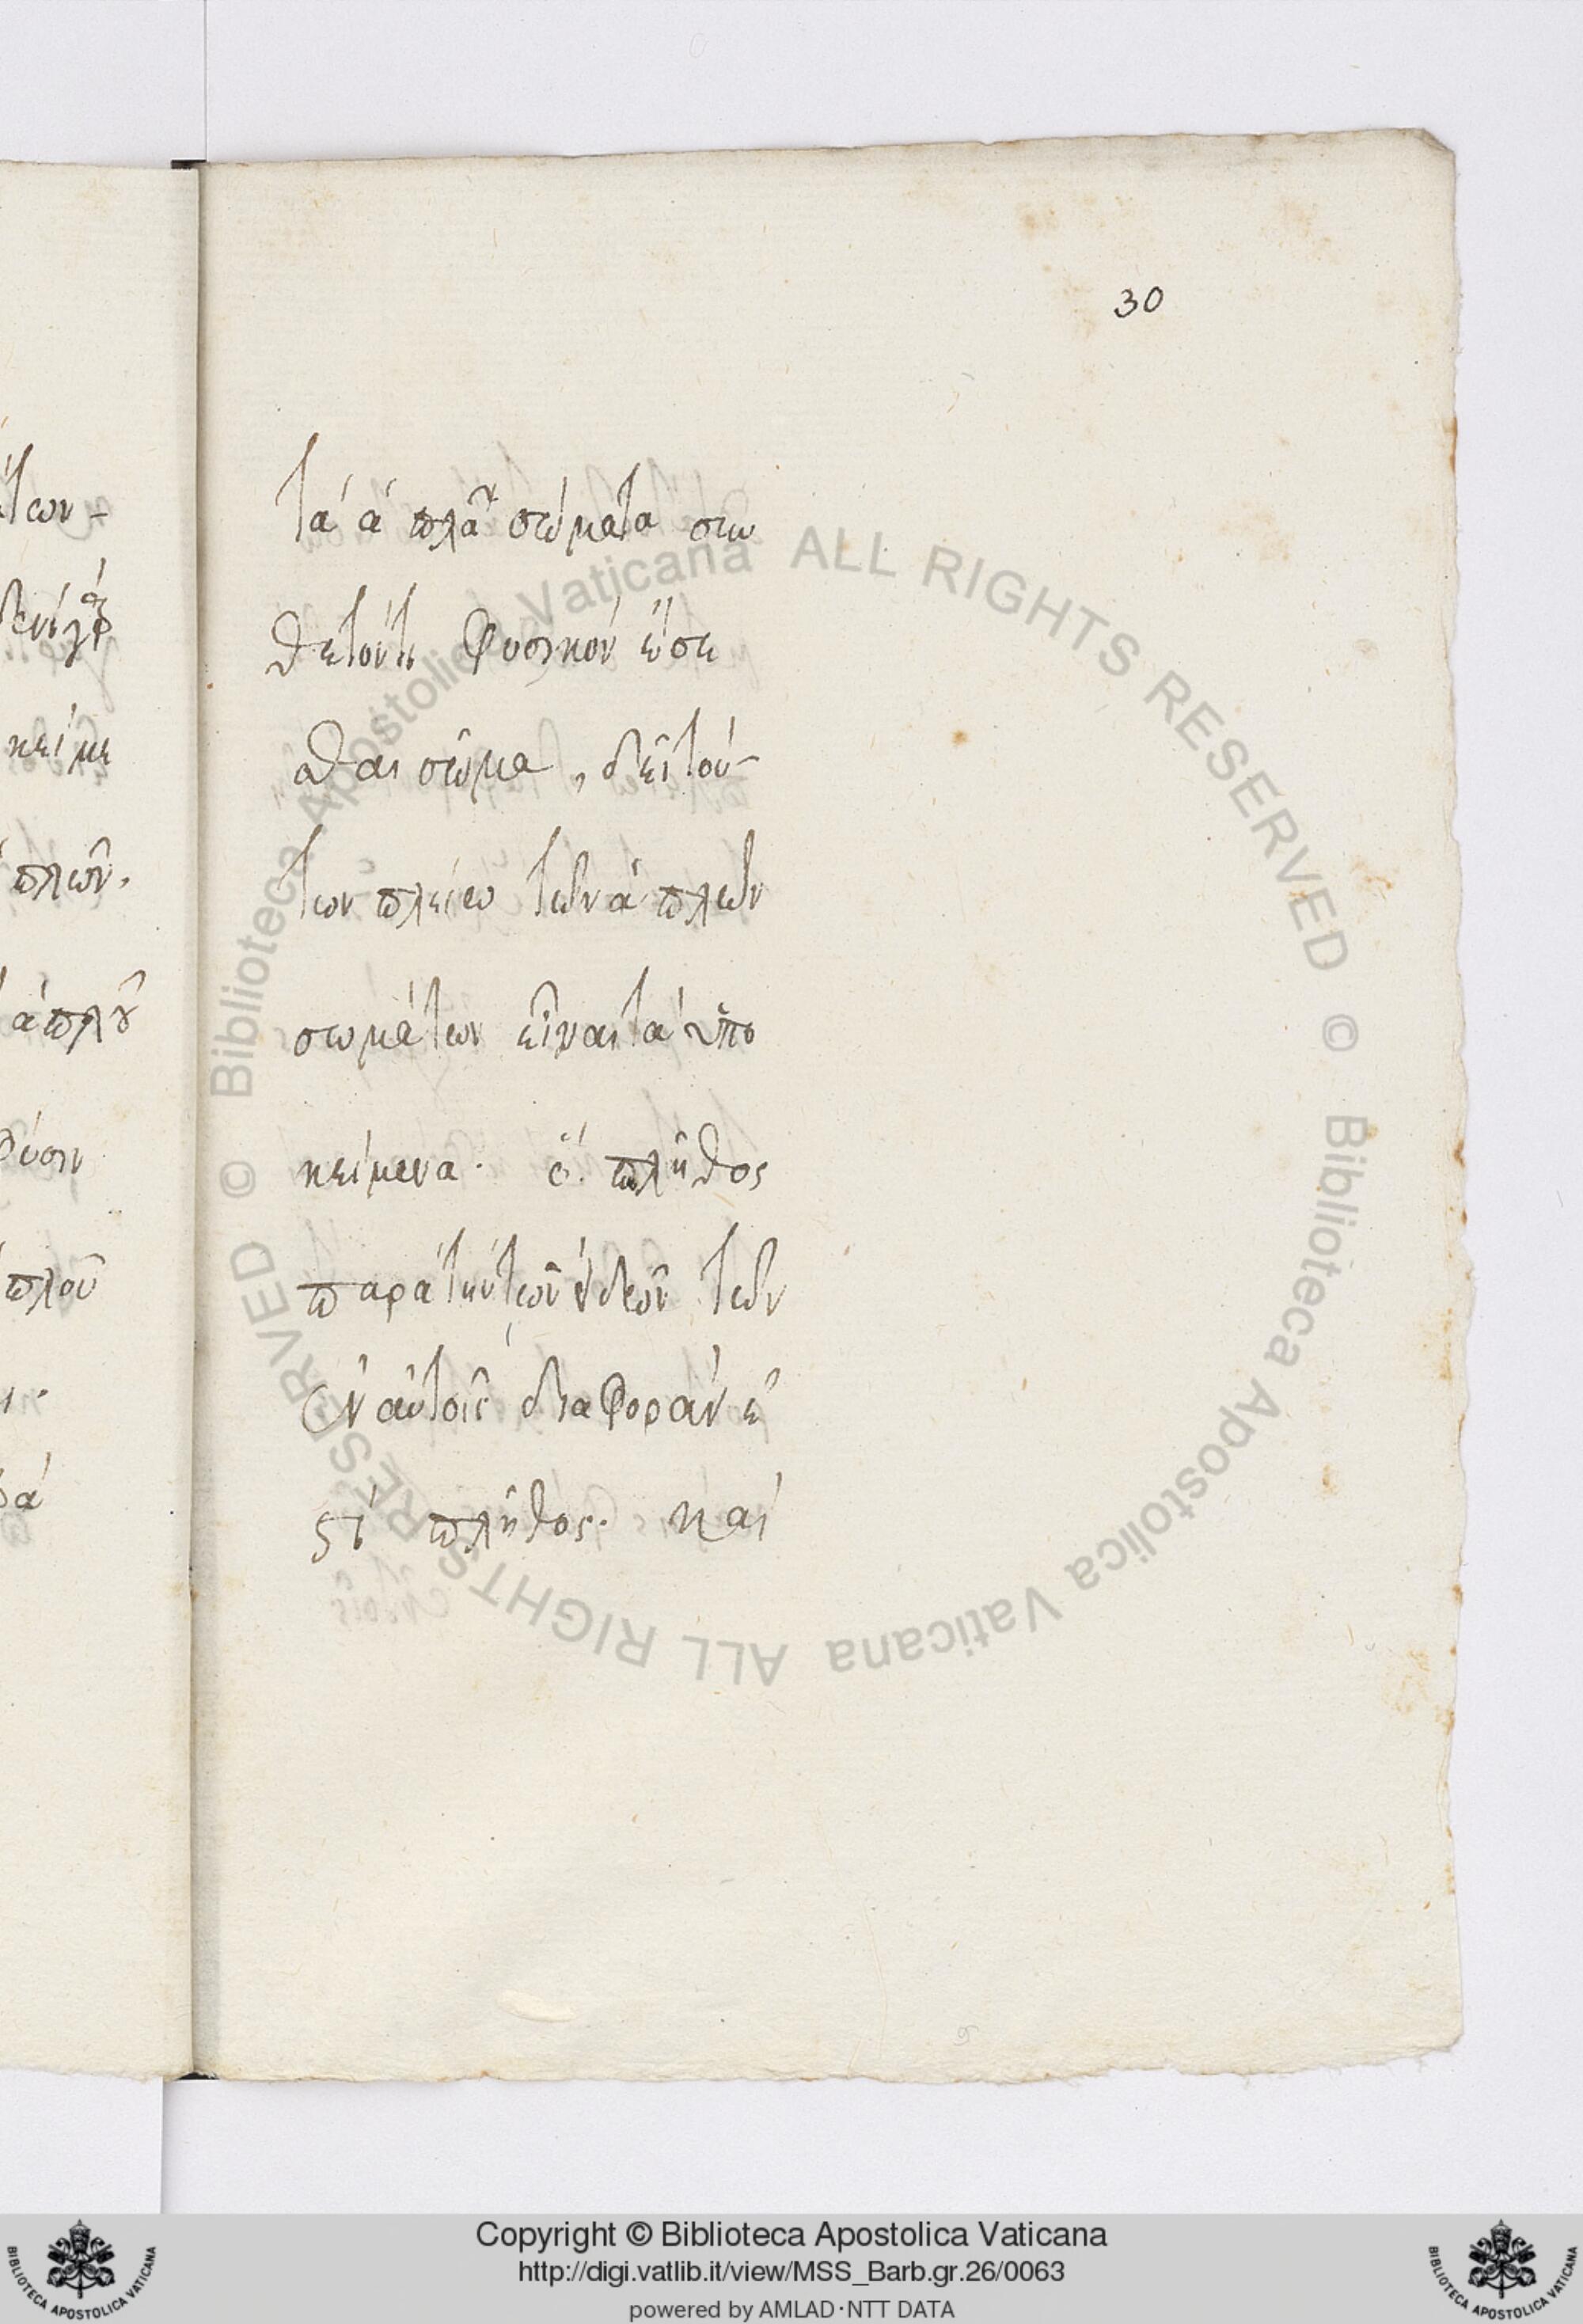 30
τὰ ἁπλᾶ σώματα συν
θετόν τι φυσικὸν ἔσε
σθαι σῶμα, δεῖ τού-
των πλείω τῶν ἁπλῶν
σωμάτων εἶναι τὰ ὑπο
κείμενα. ὁ πλῆθος
παρὰ τὴν τῶν εἰδῶν τῶν
ἐν αὐτοῖς διαφοράν ἐ
στι πλῆθος. καὶ
των-
κείμε
πλῶν.
ἁπλοῦ
φύσιν
πλοῦ
Copyright © Biblioteca Apostolica Vaticana
http://digi.vatlib.it/view/MSS_Barb.gr.26/0063
powered by AMLAD·NTT DATA
BIBLIOTECA APOSTOLICA VATICANA
BIBLIOTECA APOSTOLICA VATICANA
© Biblioteca Apostolica Vaticana ALL RIGHTS RESERVED
© Biblioteca Apostolica Vaticana ALL RIGHTS RESERVED